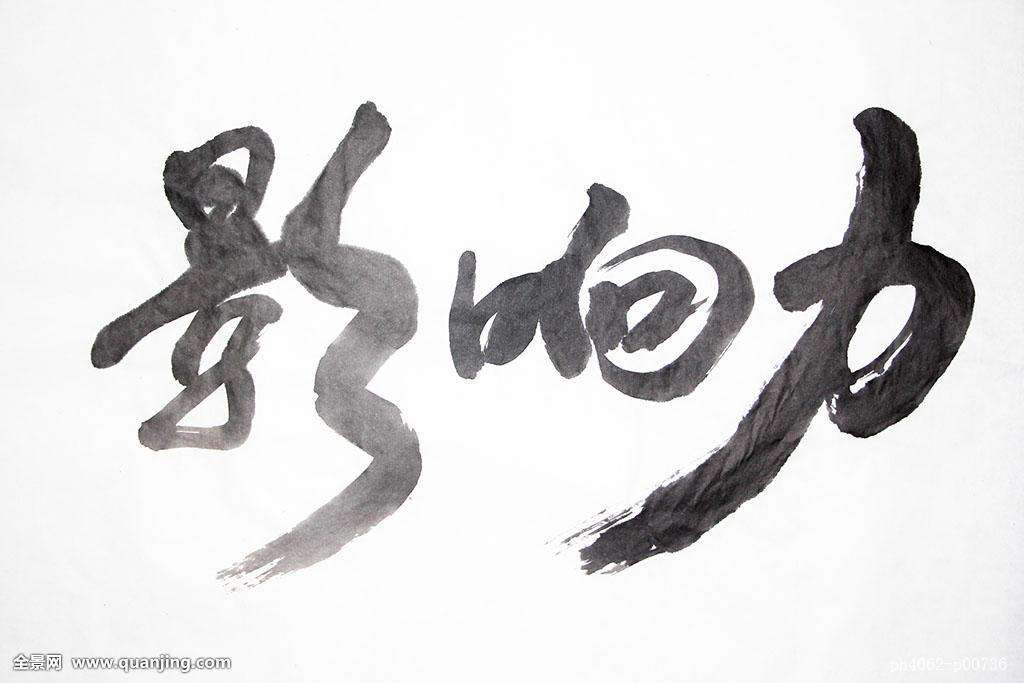 影响力
全景网 www.quanjing.com
ph4062-p00736